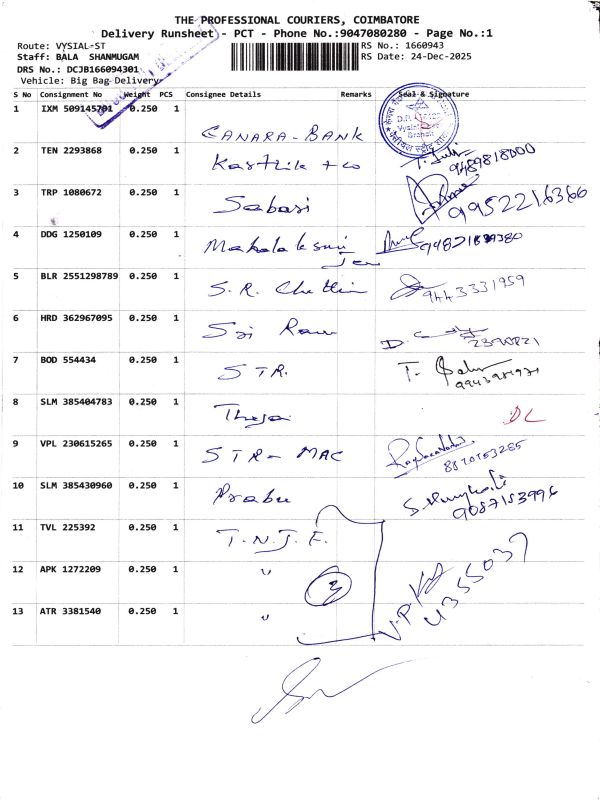 THE PROFESSIONAL COURIERS, COIMBATORE
Delivery Runsheet - PCT - Phone No.:9047080280 - Page No.:1
Route: VYSIAL-ST
RS No.: 1660943
Staff: BALA SHANMUGAM
RS Date: 24-Dec-2025
DRS No.: DCJB166094301
Vehicle: Big Bag Delivery
S No Consignment No Weight PCS Consignee Details Remarks Seal & Signature
1 IXM 509145701 0.250 1 CANARA-BANK
2 TEN 2293868 0.250 1 Karthik + co 9489818000
3 TRP 1080672 0.250 1 Sabari 9952216366
4 DDG 1250109 0.250 1
5 BLR 2551298789 0.250 1 S.R. Chettiar 9443331959
6 HRD 362967095 0.250 1 Sri Ram 2390821
7 BOD 554434 0.250 1 STR.
8 SLM 385404783 0.250 1 DL
9 VPL 230615265 0.250 1 STR-MAC 8870153285
10 SLM 385430960 0.250 1 Prabu 9087153996
11 TVL 225392 0.250 1 T.N.J.F.
12 APK 1272209 0.250 1 " 3
13 ATR 3381540 0.250 1 "
4355037